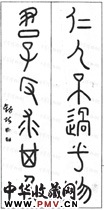 仁人不過乎物
君子反求其己
中华收藏网
www.PMV.CN